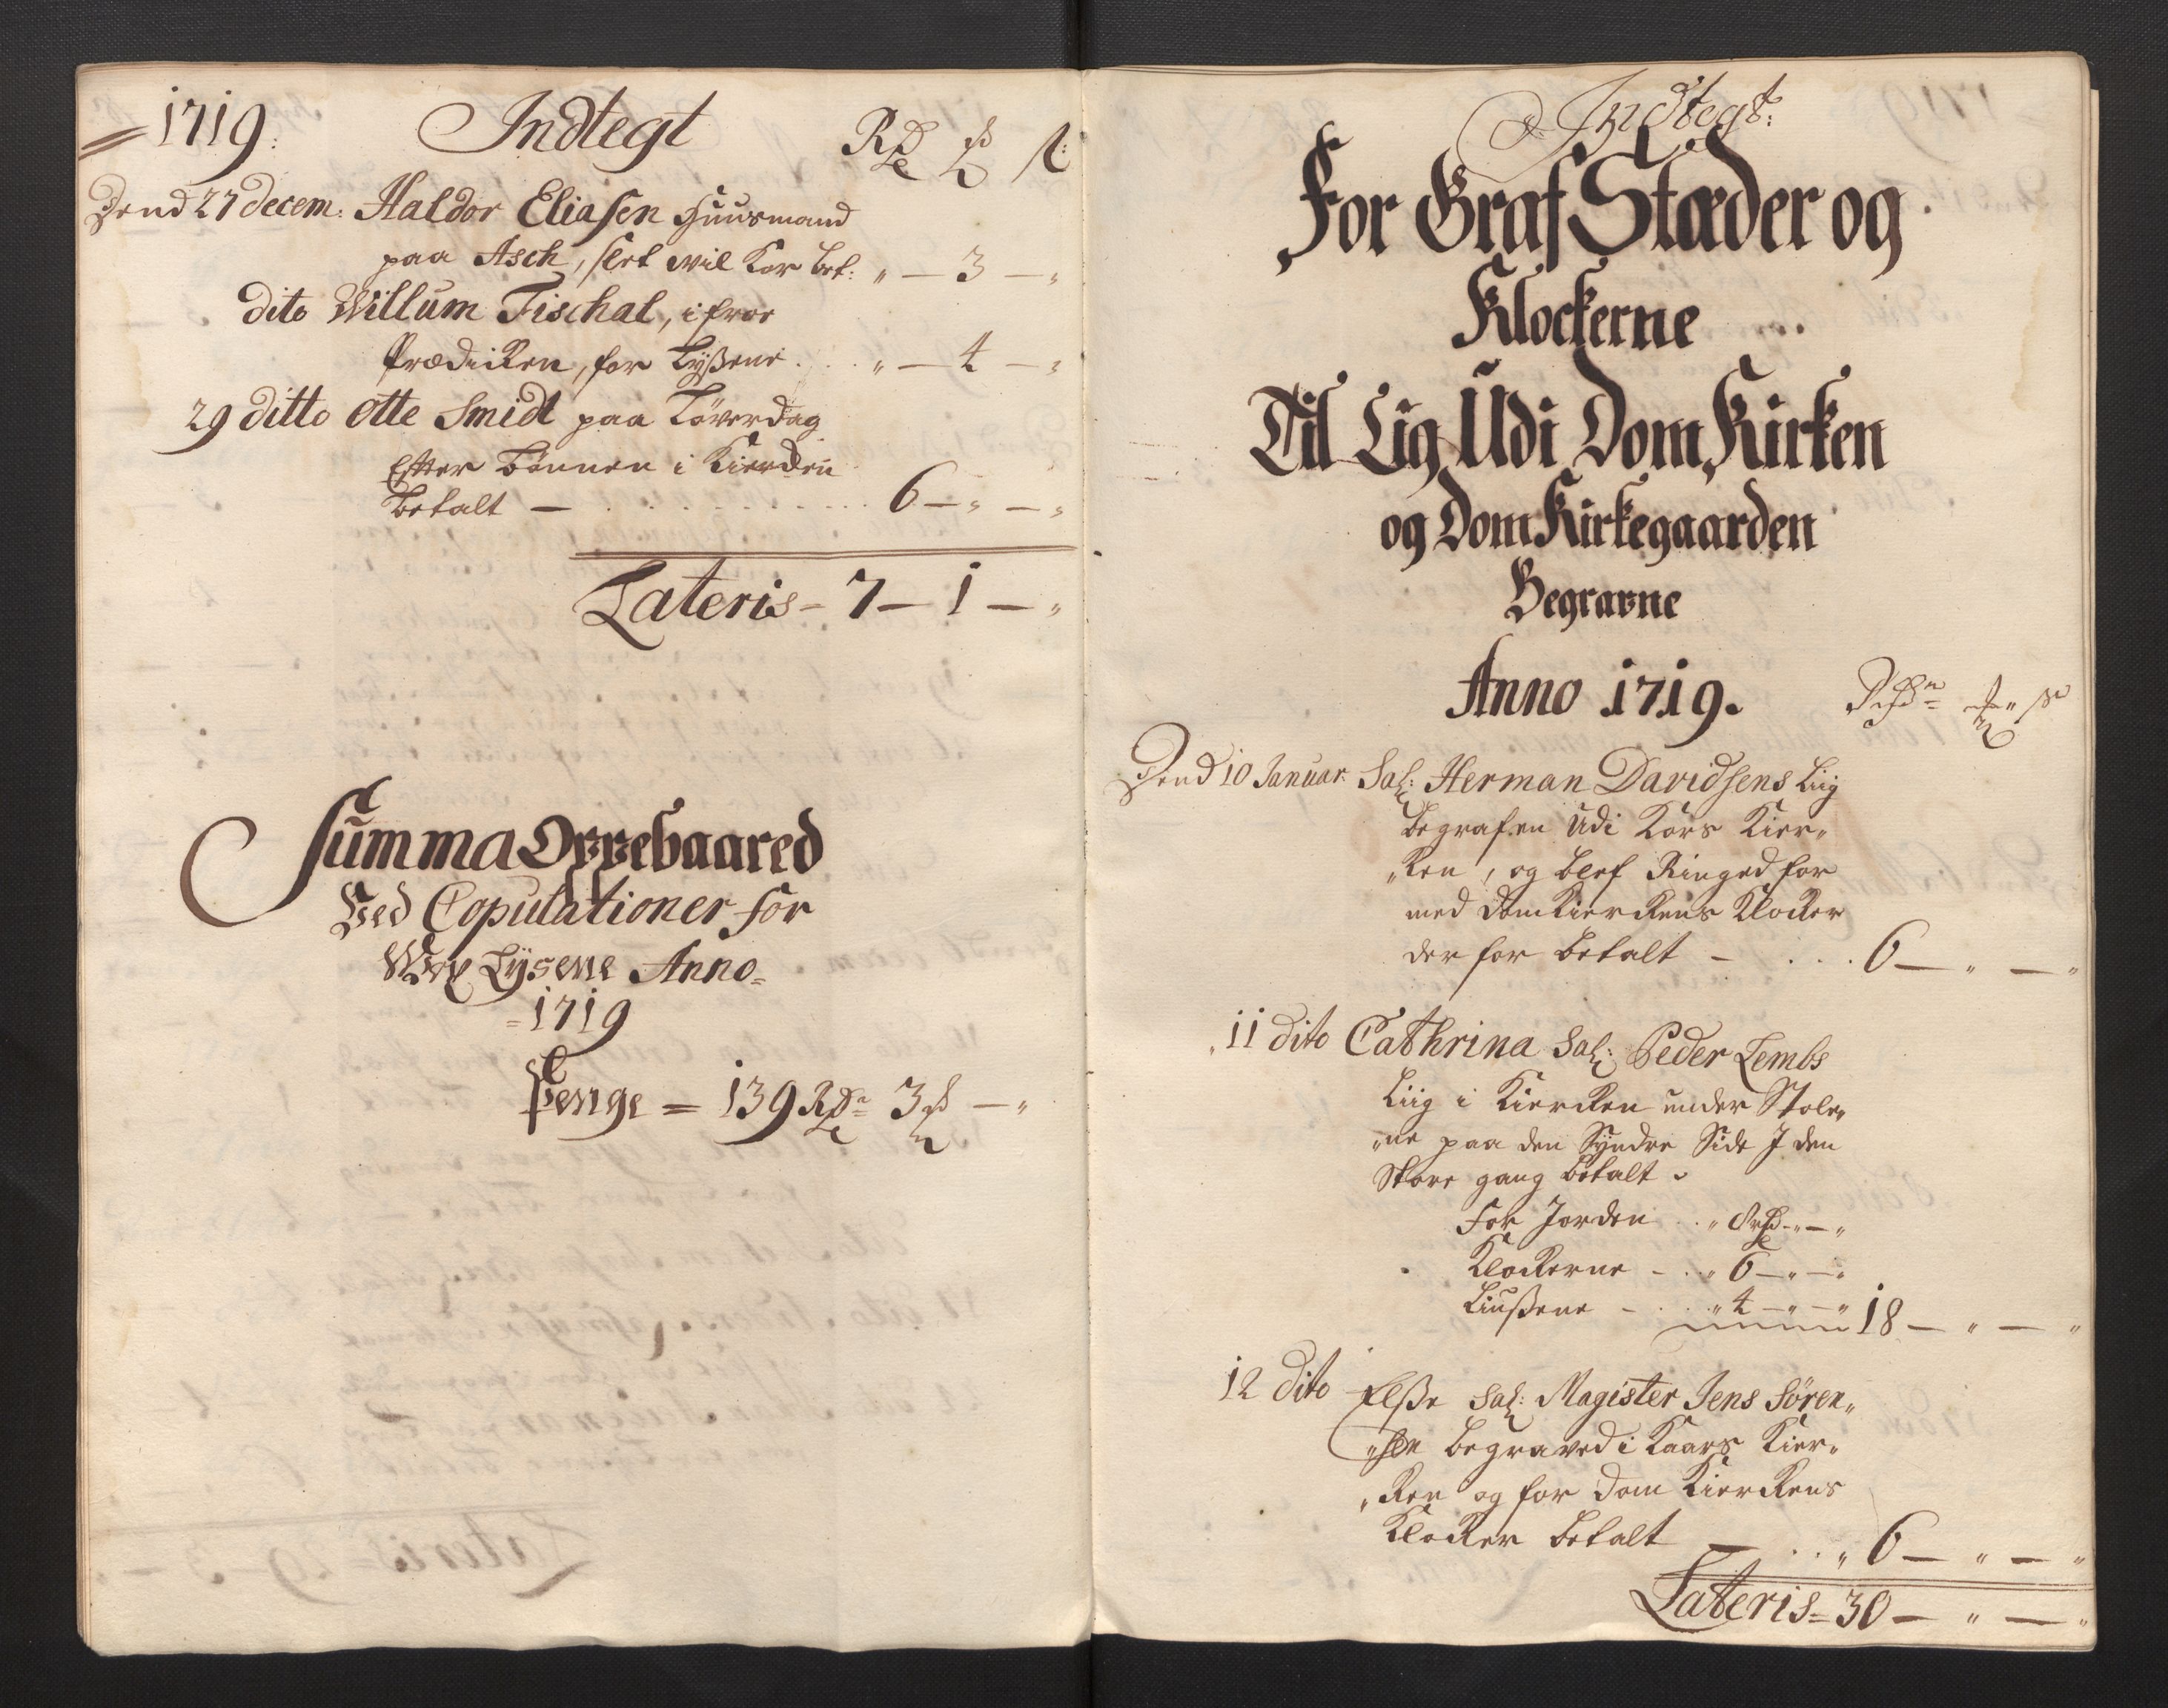 1719. Indtegt Rdr mk s:
Dend 27 decem: Haldor Eliasen Huusmand
paa Asch, slet vil kor bet: „ — 3 — „
dito Willum Fischal, i fror
Prædicken, for Lyßene . . „ — 4 — „
29 ditto Otte Smidt paa Löverdag
Efter Bönnen i Kiercken
betalt — . . . . . 6 — „ — „
Lateris — 7 — 1 — „
Summa Oppebaared
Ved Copulationer for
Wox Lÿsene Anno
1719
Penge = 139 Rdr 3 mk — „
Indtegt:
For Graf Stæder og
Klockerne
Til Lig Udi Dom Kirken
og Dom Kirkegaarden
Begravne
Anno 1719. Rdr mk s
Dend 10 Januar: Sal: Herman Davidsens Liig
begrafen Udi Kors Kier„
„ken, og blef Ringed for
med Domkierckens Klocker
der for betalt — . . . 6 — „ — „
11 dito Cathrina Sal: Peder Lembs
Liig i Kiercken under Stole„
„ne paa den Syndre Side I den
Store gang betalt
For Jorden . . „ 8 rd — „ — „
Klockerne — . . „ 6 — „ — „
Liußene — . . „ 4 — „ — „ 18 — „ — „
12 dito Elße Sal: Magister Jens Sören„
„sen begraved i Kaars Kier„
„ken og for Dom Kierckens
Klocker betalt — . . „ 6 — „ — „
Lateris = 30 — „ — „